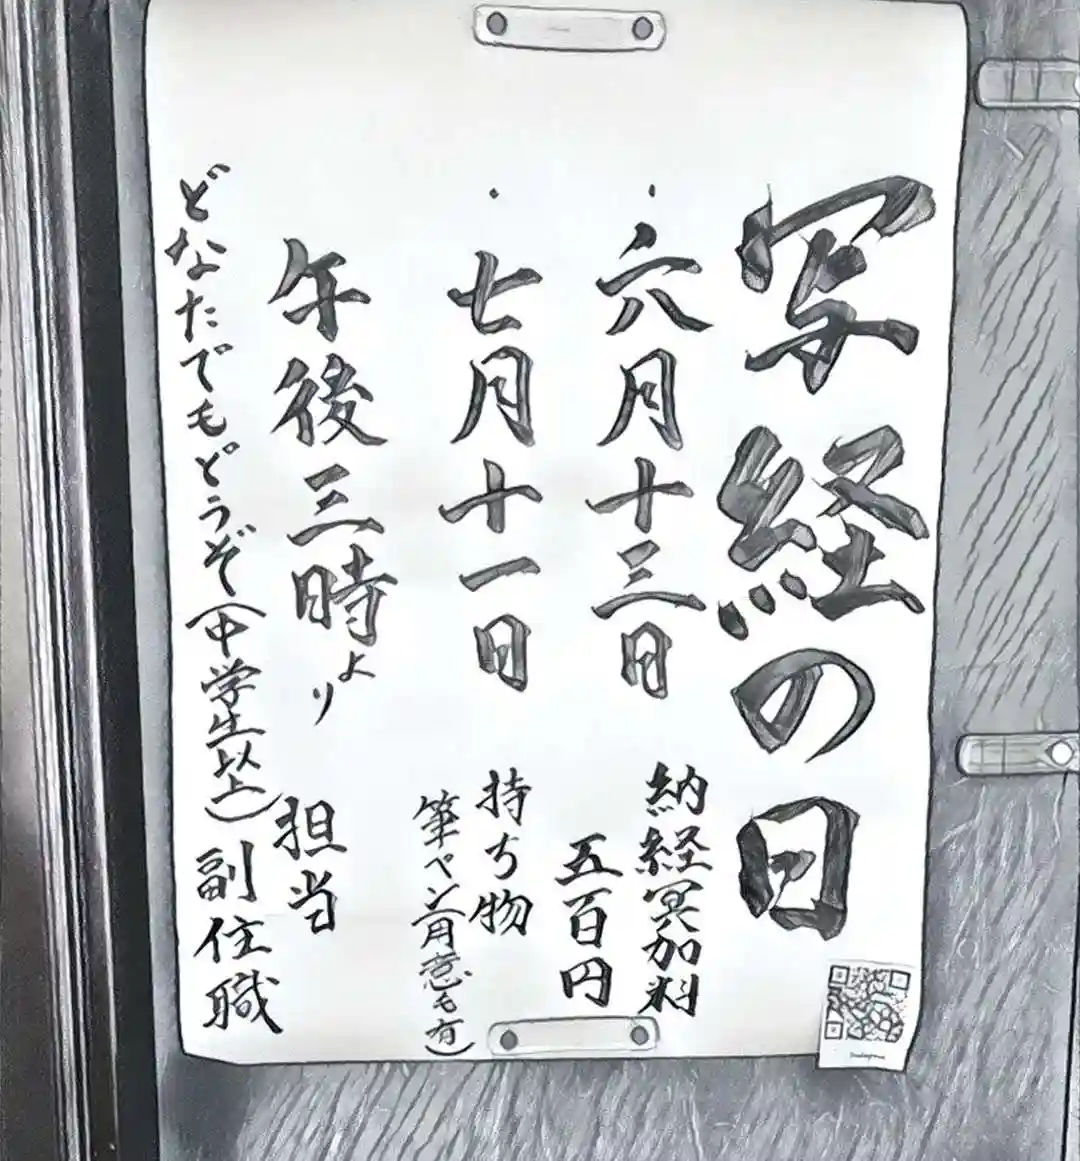 写経の日
・六月十三日
納経冥加料
五百円
・七月十一日
持ち物
筆ペン(用意も有)
午後三時より
担当
副住職
どなたでもどうぞ(中学生以上)